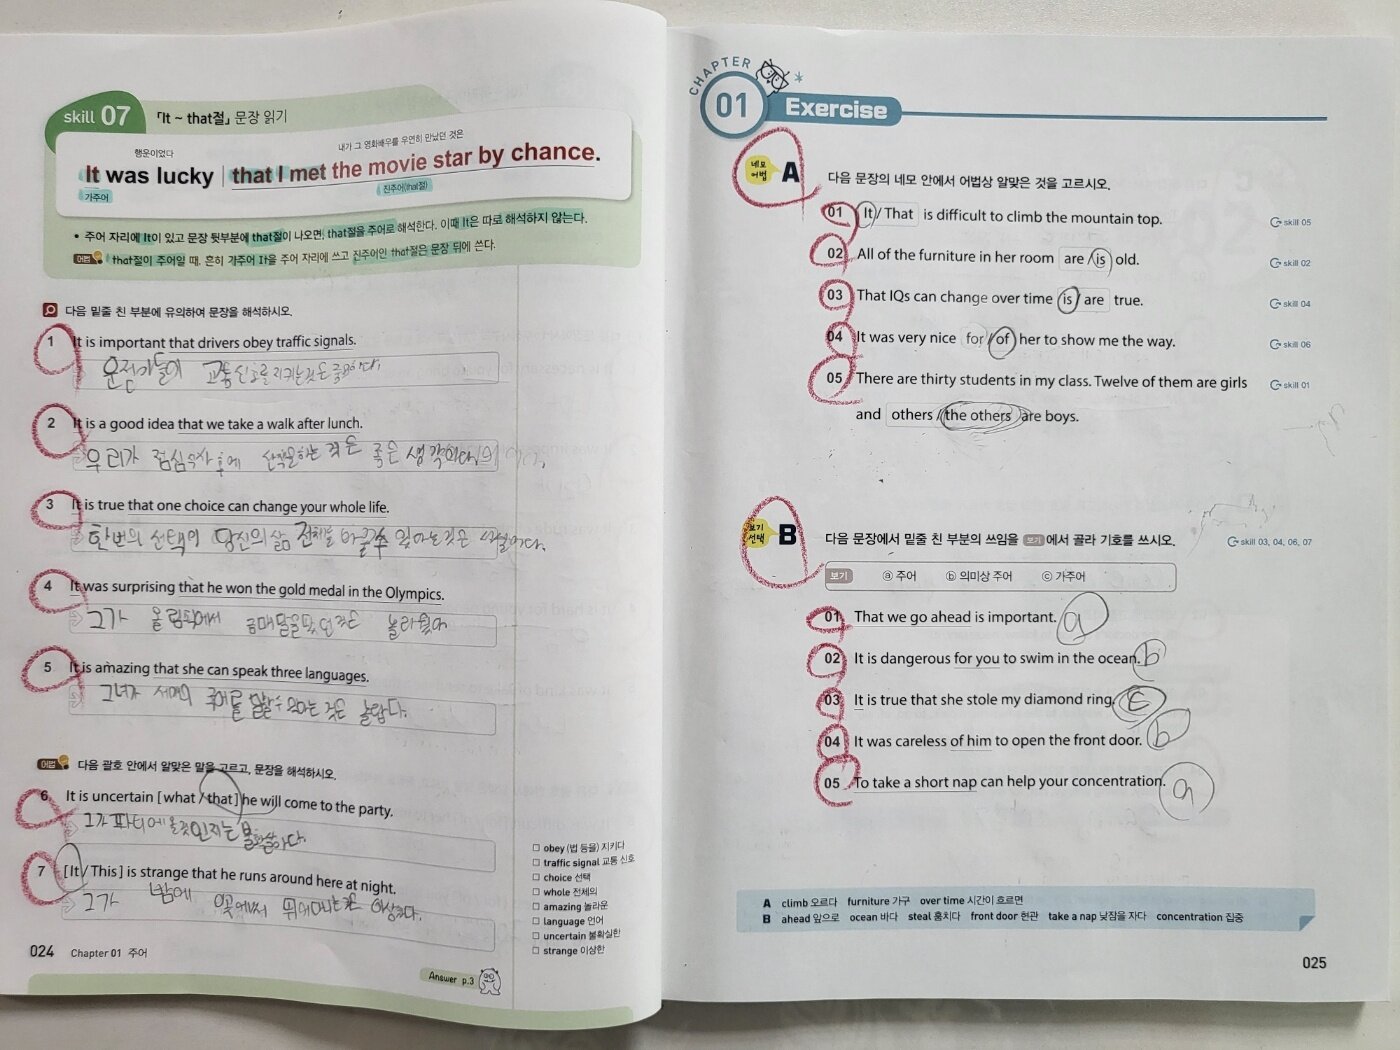 skill 07 「It ~ that절」 문장 읽기
행운이었다
내가 그 영화배우를 우연히 만났던 것은
It was lucky | that I met the movie star by chance.
가주어
진주어(that절)
• 주어 자리에 It이 있고 문장 뒷부분에 that절이 나오면, that절을 주어로 해석한다. 이때 It은 따로 해석하지 않는다.
어법 that절이 주어일 때, 흔히 가주어 It을 주어 자리에 쓰고 진주어인 that절은 문장 뒤에 쓴다.
다음 밑줄 친 부분에 유의하여 문장을 해석하시오.
1 It is important that drivers obey traffic signals.
운전자들이 교통신호를 지키는것은 중요하다.
2 It is a good idea that we take a walk after lunch.
우리가 점심식사 후에 산책을하는 것은 좋은 생각이다.
3 It is true that one choice can change your whole life.
한번의 선택이 당신의 삶 전체를 바꿀수 있다는것은 사실이다.
4 It was surprising that he won the gold medal in the Olympics.
그가 올림픽에서 금메달을 것은 놀라웠다
5 It is amazing that she can speak three languages.
그녀가 세개의 국어를 말할수 있다는 것은 놀랍다.
어법 다음 괄호 안에서 알맞은 말을 고르고, 문장을 해석하시오.
6 It is uncertain [what / that] he will come to the party.
그가 파티에 올것인지는 불확실하다.
7 [It / This] is strange that he runs around here at night.
그가 밤에 이곳에서 뛰어다니는것은 이상하다.
obey (법 등을) 지키다
traffic signal 교통 신호
choice 선택
whole 전체의
amazing 놀라운
language 언어
uncertain 불확실한
strange 이상한
024 Chapter 01 주어
Answer p.3
CHAPTER
01 Exercise
네모 어법 A 다음 문장의 네모 안에서 어법상 알맞은 것을 고르시오.
01 It / That is difficult to climb the mountain top. skill 05
02 All of the furniture in her room are / is old. skill 02
03 That IQs can change over time is / are true. skill 04
04 It was very nice for / of her to show me the way. skill 06
05 There are thirty students in my class. Twelve of them are girls skill 01
and others / the others are boys.
보기 선택 B 다음 문장에서 밑줄 친 부분의 쓰임을 보기 에서 골라 기호를 쓰시오. skill 03, 04, 06, 07
보기 ⓐ 주어 ⓑ 의미상 주어 ⓒ 가주어
01 That we go ahead is important. a
02 It is dangerous for you to swim in the ocean. b
03 It is true that she stole my diamond ring. c
04 It was careless of him to open the front door. b
05 To take a short nap can help your concentration. a
A climb 오르다 furniture 가구 over time 시간이 흐르면
B ahead 앞으로 ocean 바다 steal 훔치다 front door 현관 take a nap 낮잠을 자다 concentration 집중
025